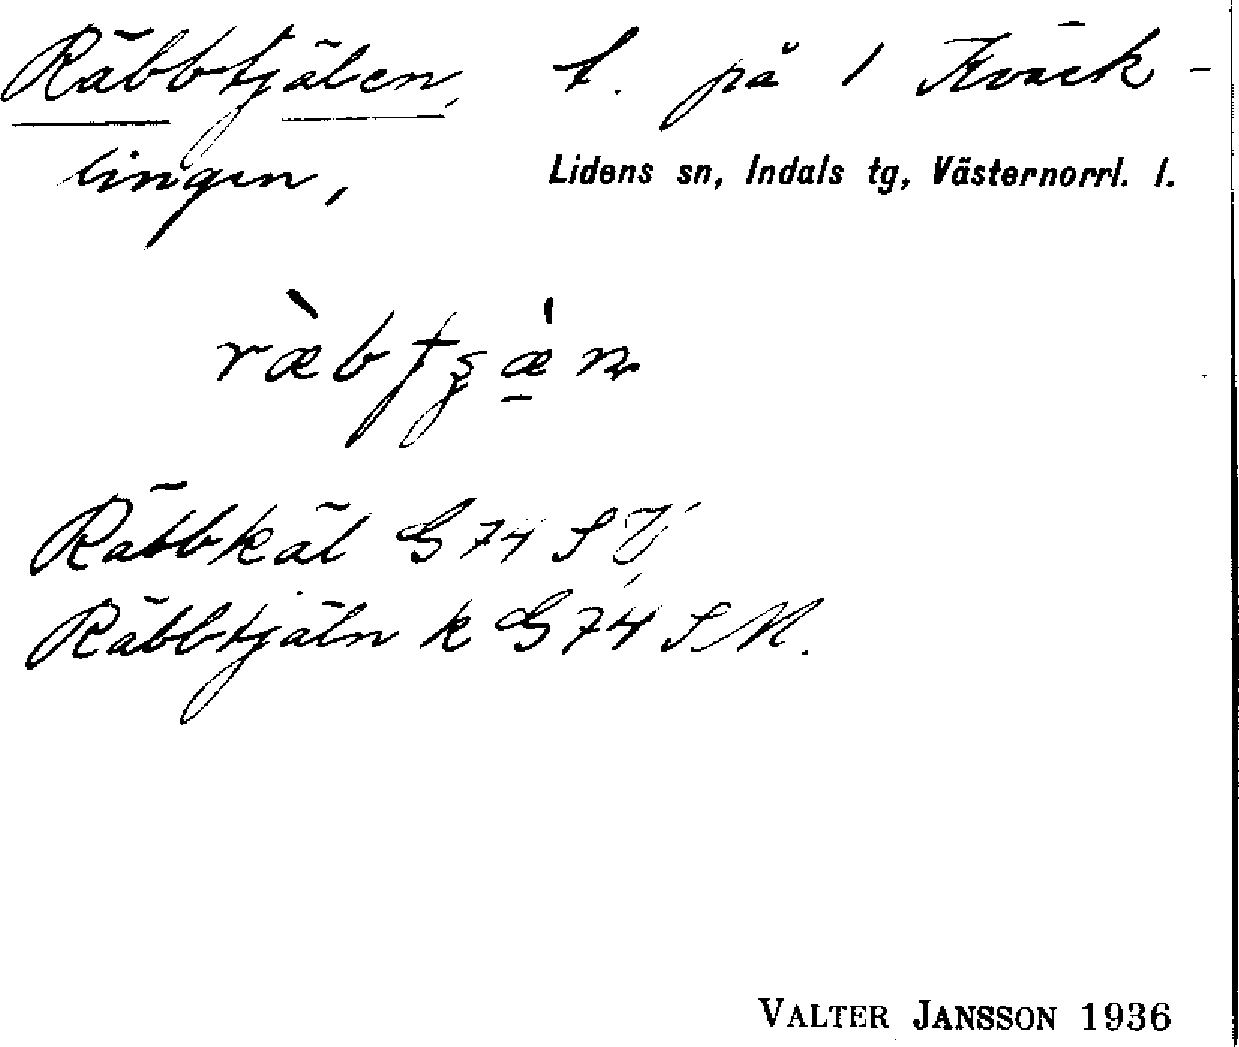 Räbbtjälen, t. på 1 Kväck-
lingen, Lidens sn, Indals tg, Västernorrl. l.
Räbbkäl G 74 S
Räbbtjäln k G 74 S M.
VALTER JANSSON 1936